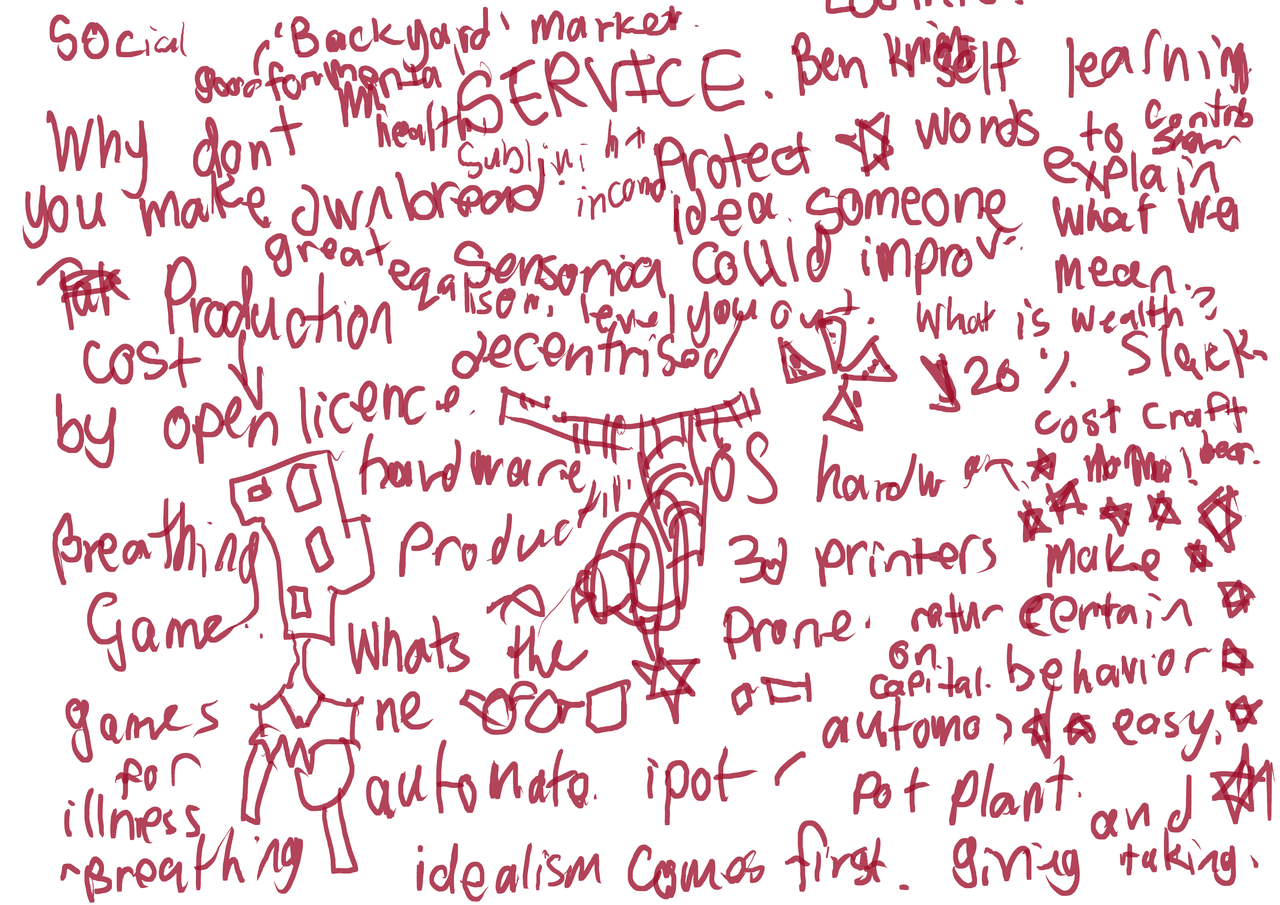 Social 'Backyard' market.
good for menta health SERVICE. Ben self learning
Why don't Protect words to
you make own bread idea. someone explain what we mean.
great equaliser. level you out.
Sensorica could improv
Production cost decentrised What is wealth?
20% Slack
by open licence. cost craft
hardware OS hardw
Breathing Game. Product 3d printers make
Whats the prone. retur certain
on capital. behavior
games for illness ne automo easy.
automate. ipot Pot plant.
~Breathing idealism comes first. giving and taking.